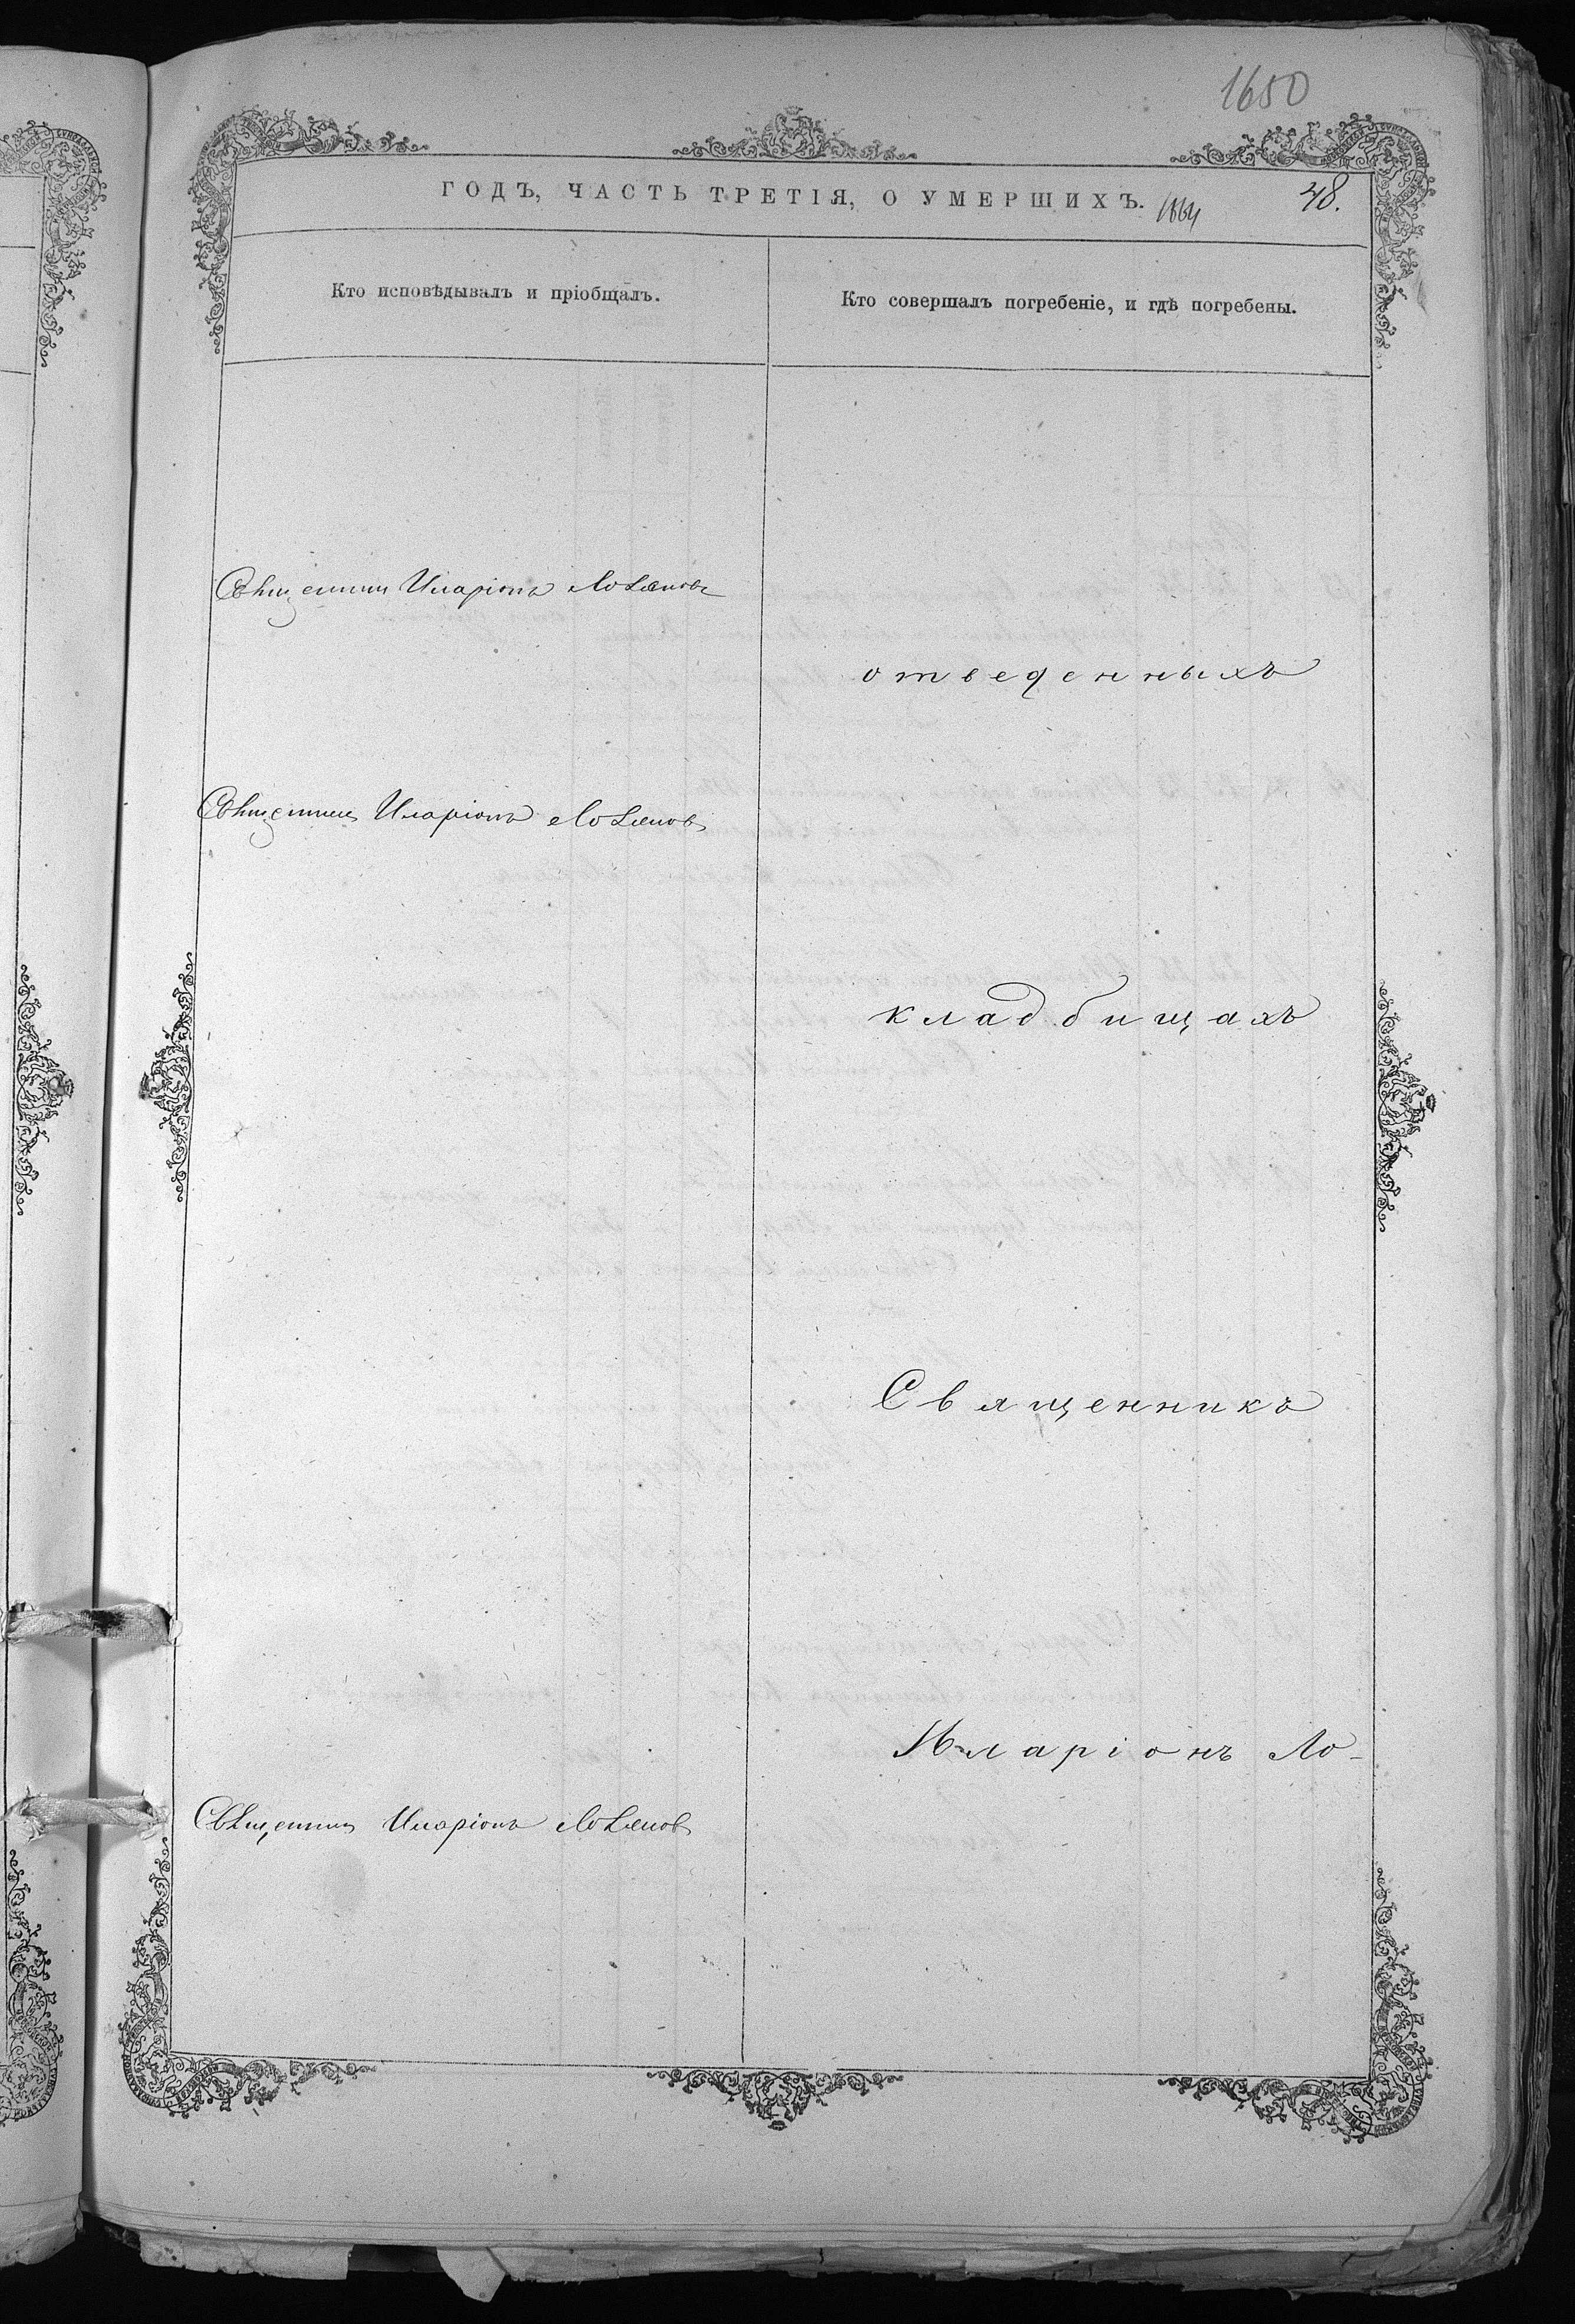 1650
ГОДЪ, ЧАСТЬ ТРЕТІЯ, О УМЕРШИХЪ. 1864
48.
Кто исповѣдывалъ и пріобщалъ.
Кто совершалъ погребеніе, и гдѣ погребены.
Священникъ Иларіонъ
отведенныхъ
Священникъ Иларіонъ
кладбищахъ
Священникъ
Иларіонъ Ло-
Священникъ Иларіонъ